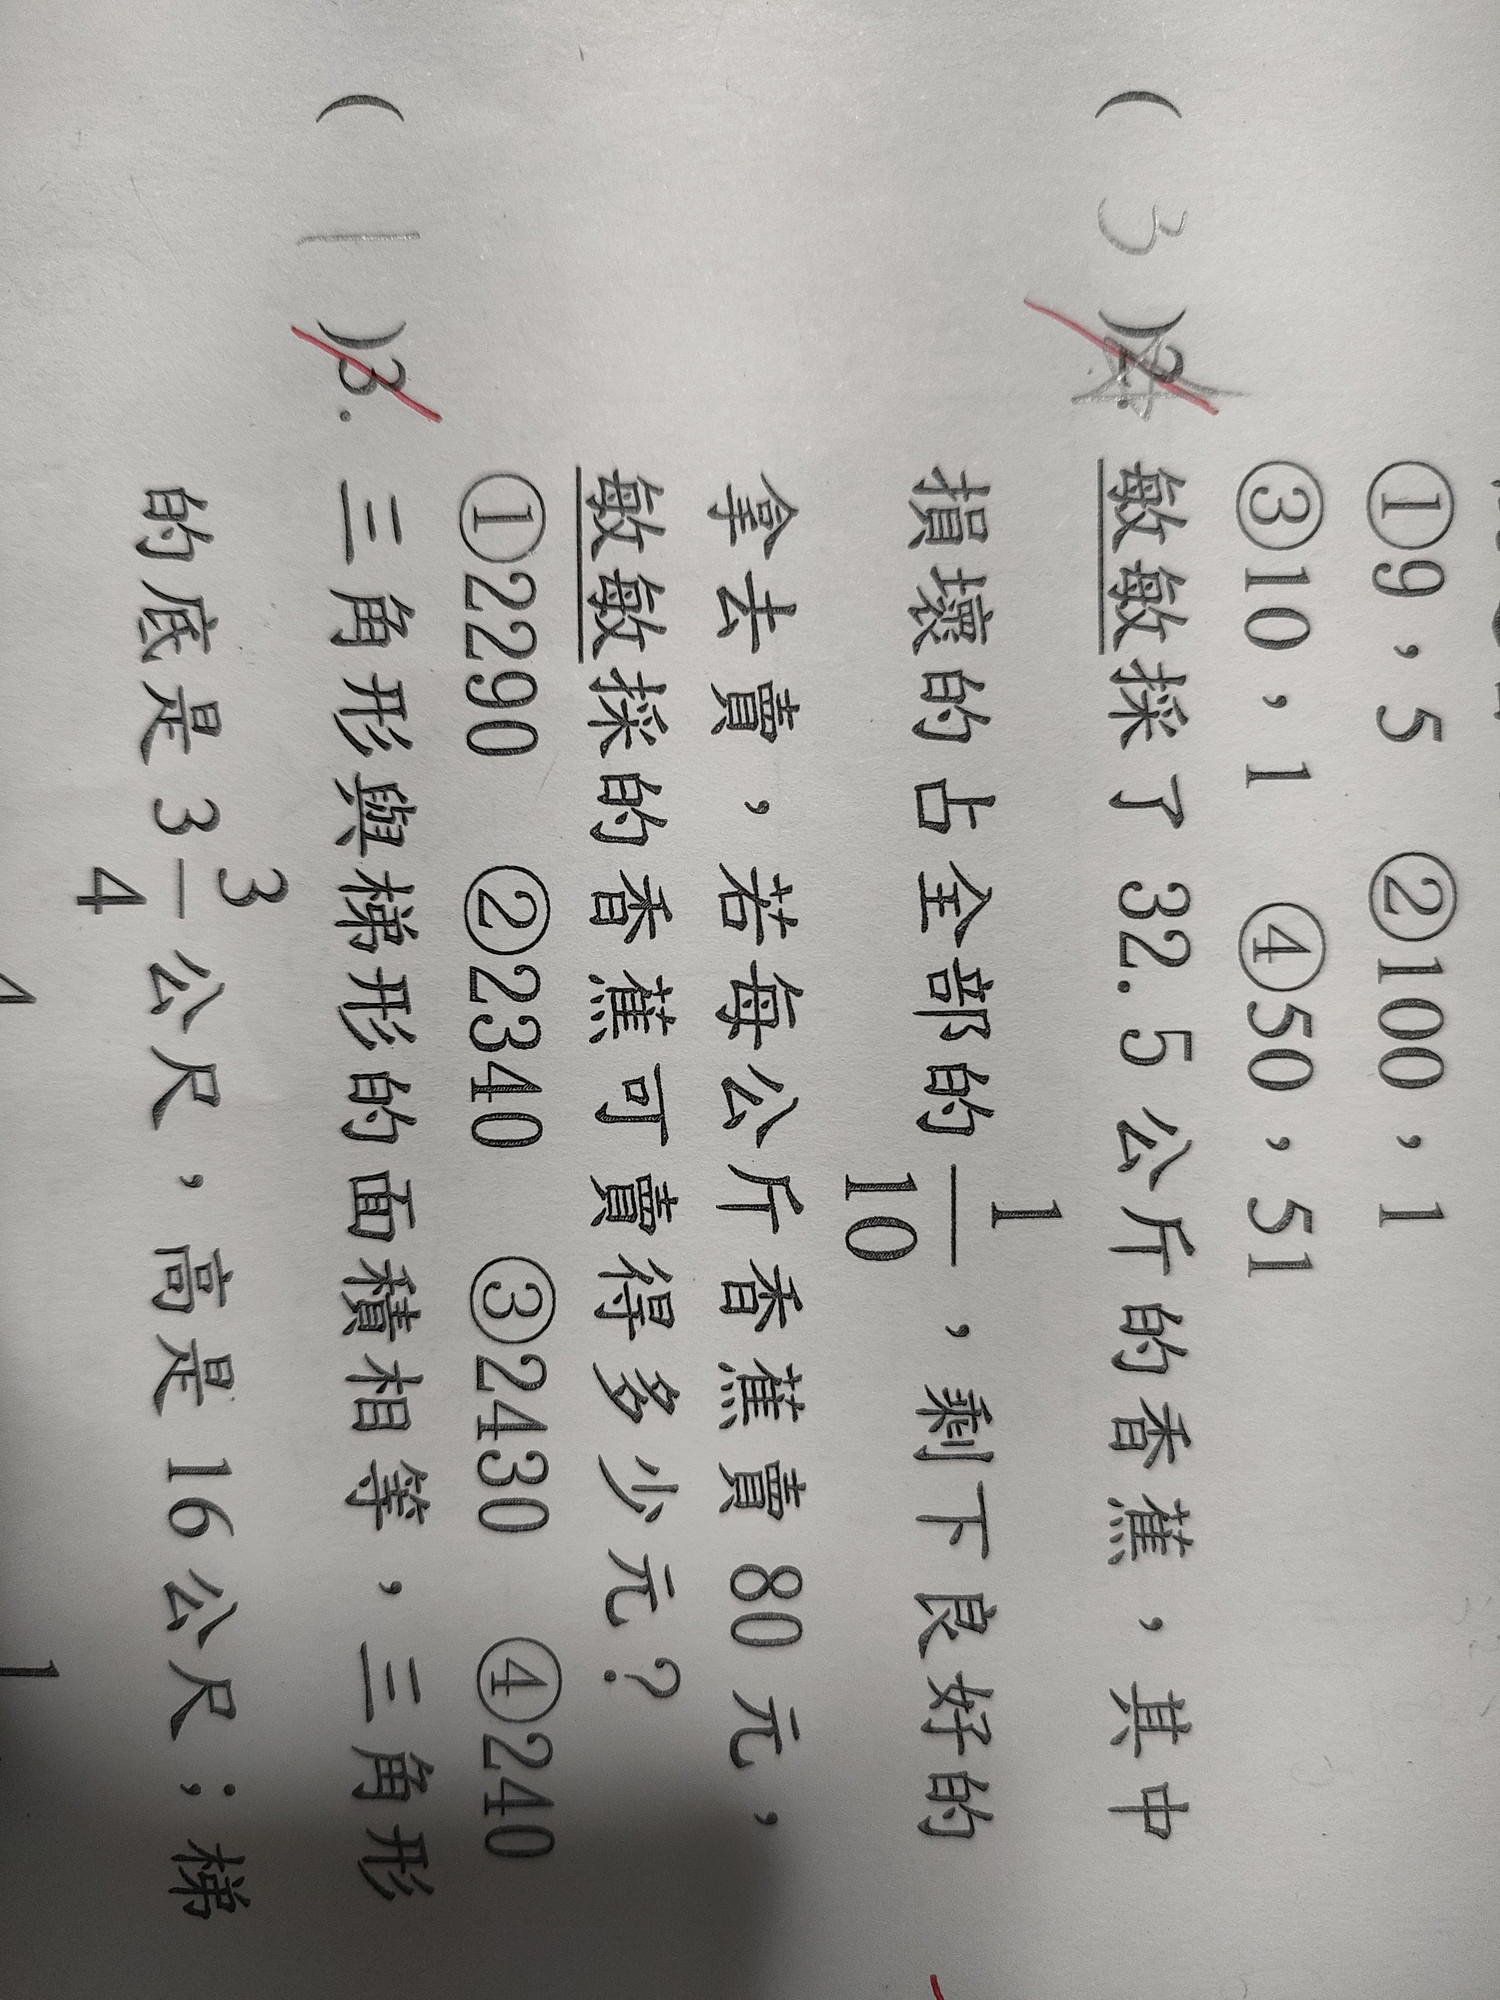 ①9，5 ②100，1
③10，1 ④50，51
( 3 )2. 敏敏採了 32.5 公斤的香蕉，其中
損壞的占全部的 1/10，剩下良好的
拿去賣，若每公斤香蕉賣 80 元，
敏敏採的香蕉可賣得多少元？
①2290 ②2340 ③2430 ④240
( 1 )3. 三角形與梯形的面積相等，三角形
的底是 3 3/4 公尺，高是 16 公尺；梯